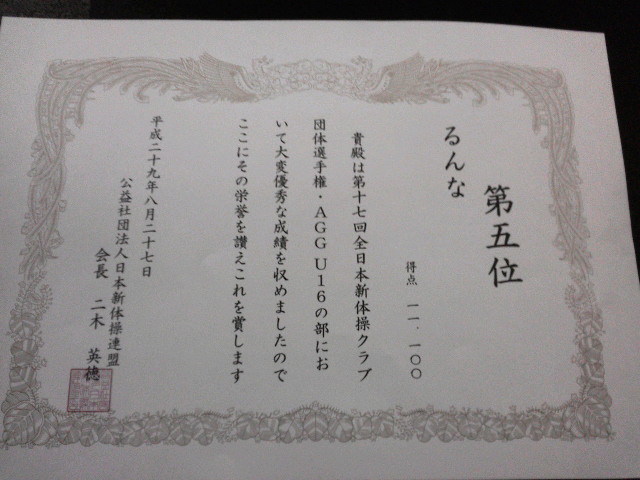 第五位
るんな
得点 一一.一〇〇
貴殿は第十七回全日本新体操クラブ
団体選手権・AGG U16の部にお
いて大変優秀な成績を収めましたので
ここにその栄誉を讃えこれを賞します
平成二十九年八月二十七日
公益社団法人日本新体操連盟
会長 二木 英徳